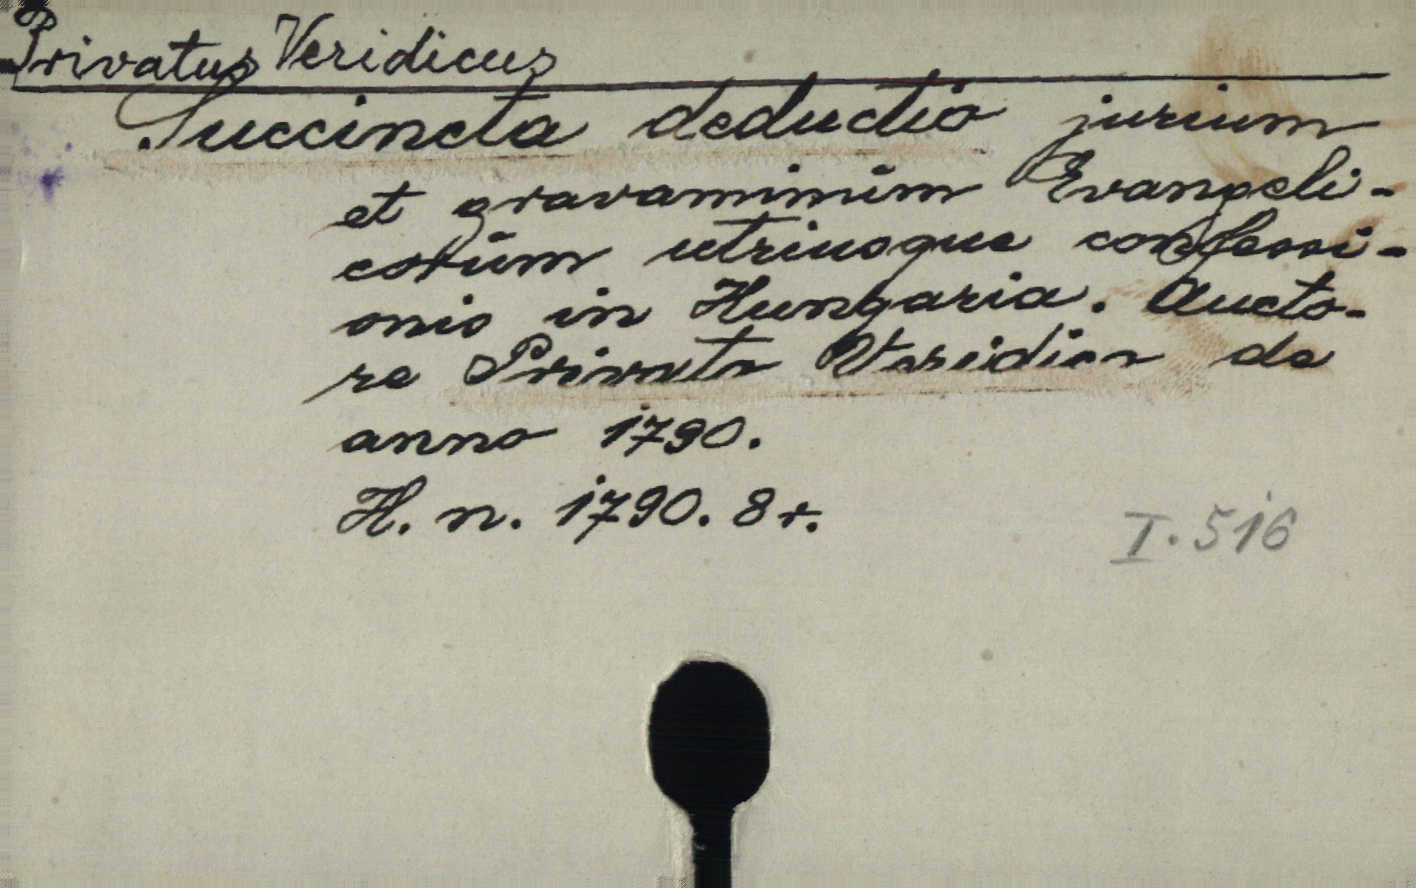 Privatus Veridicus
Succincta deductio jurium
et gravaminum Evangeli-
corum utriusque confessi-
onis in Hungaria. Aucto-
re Privato Veridico de
anno 1790.
H. n. 1790. 8 r.
I. 516